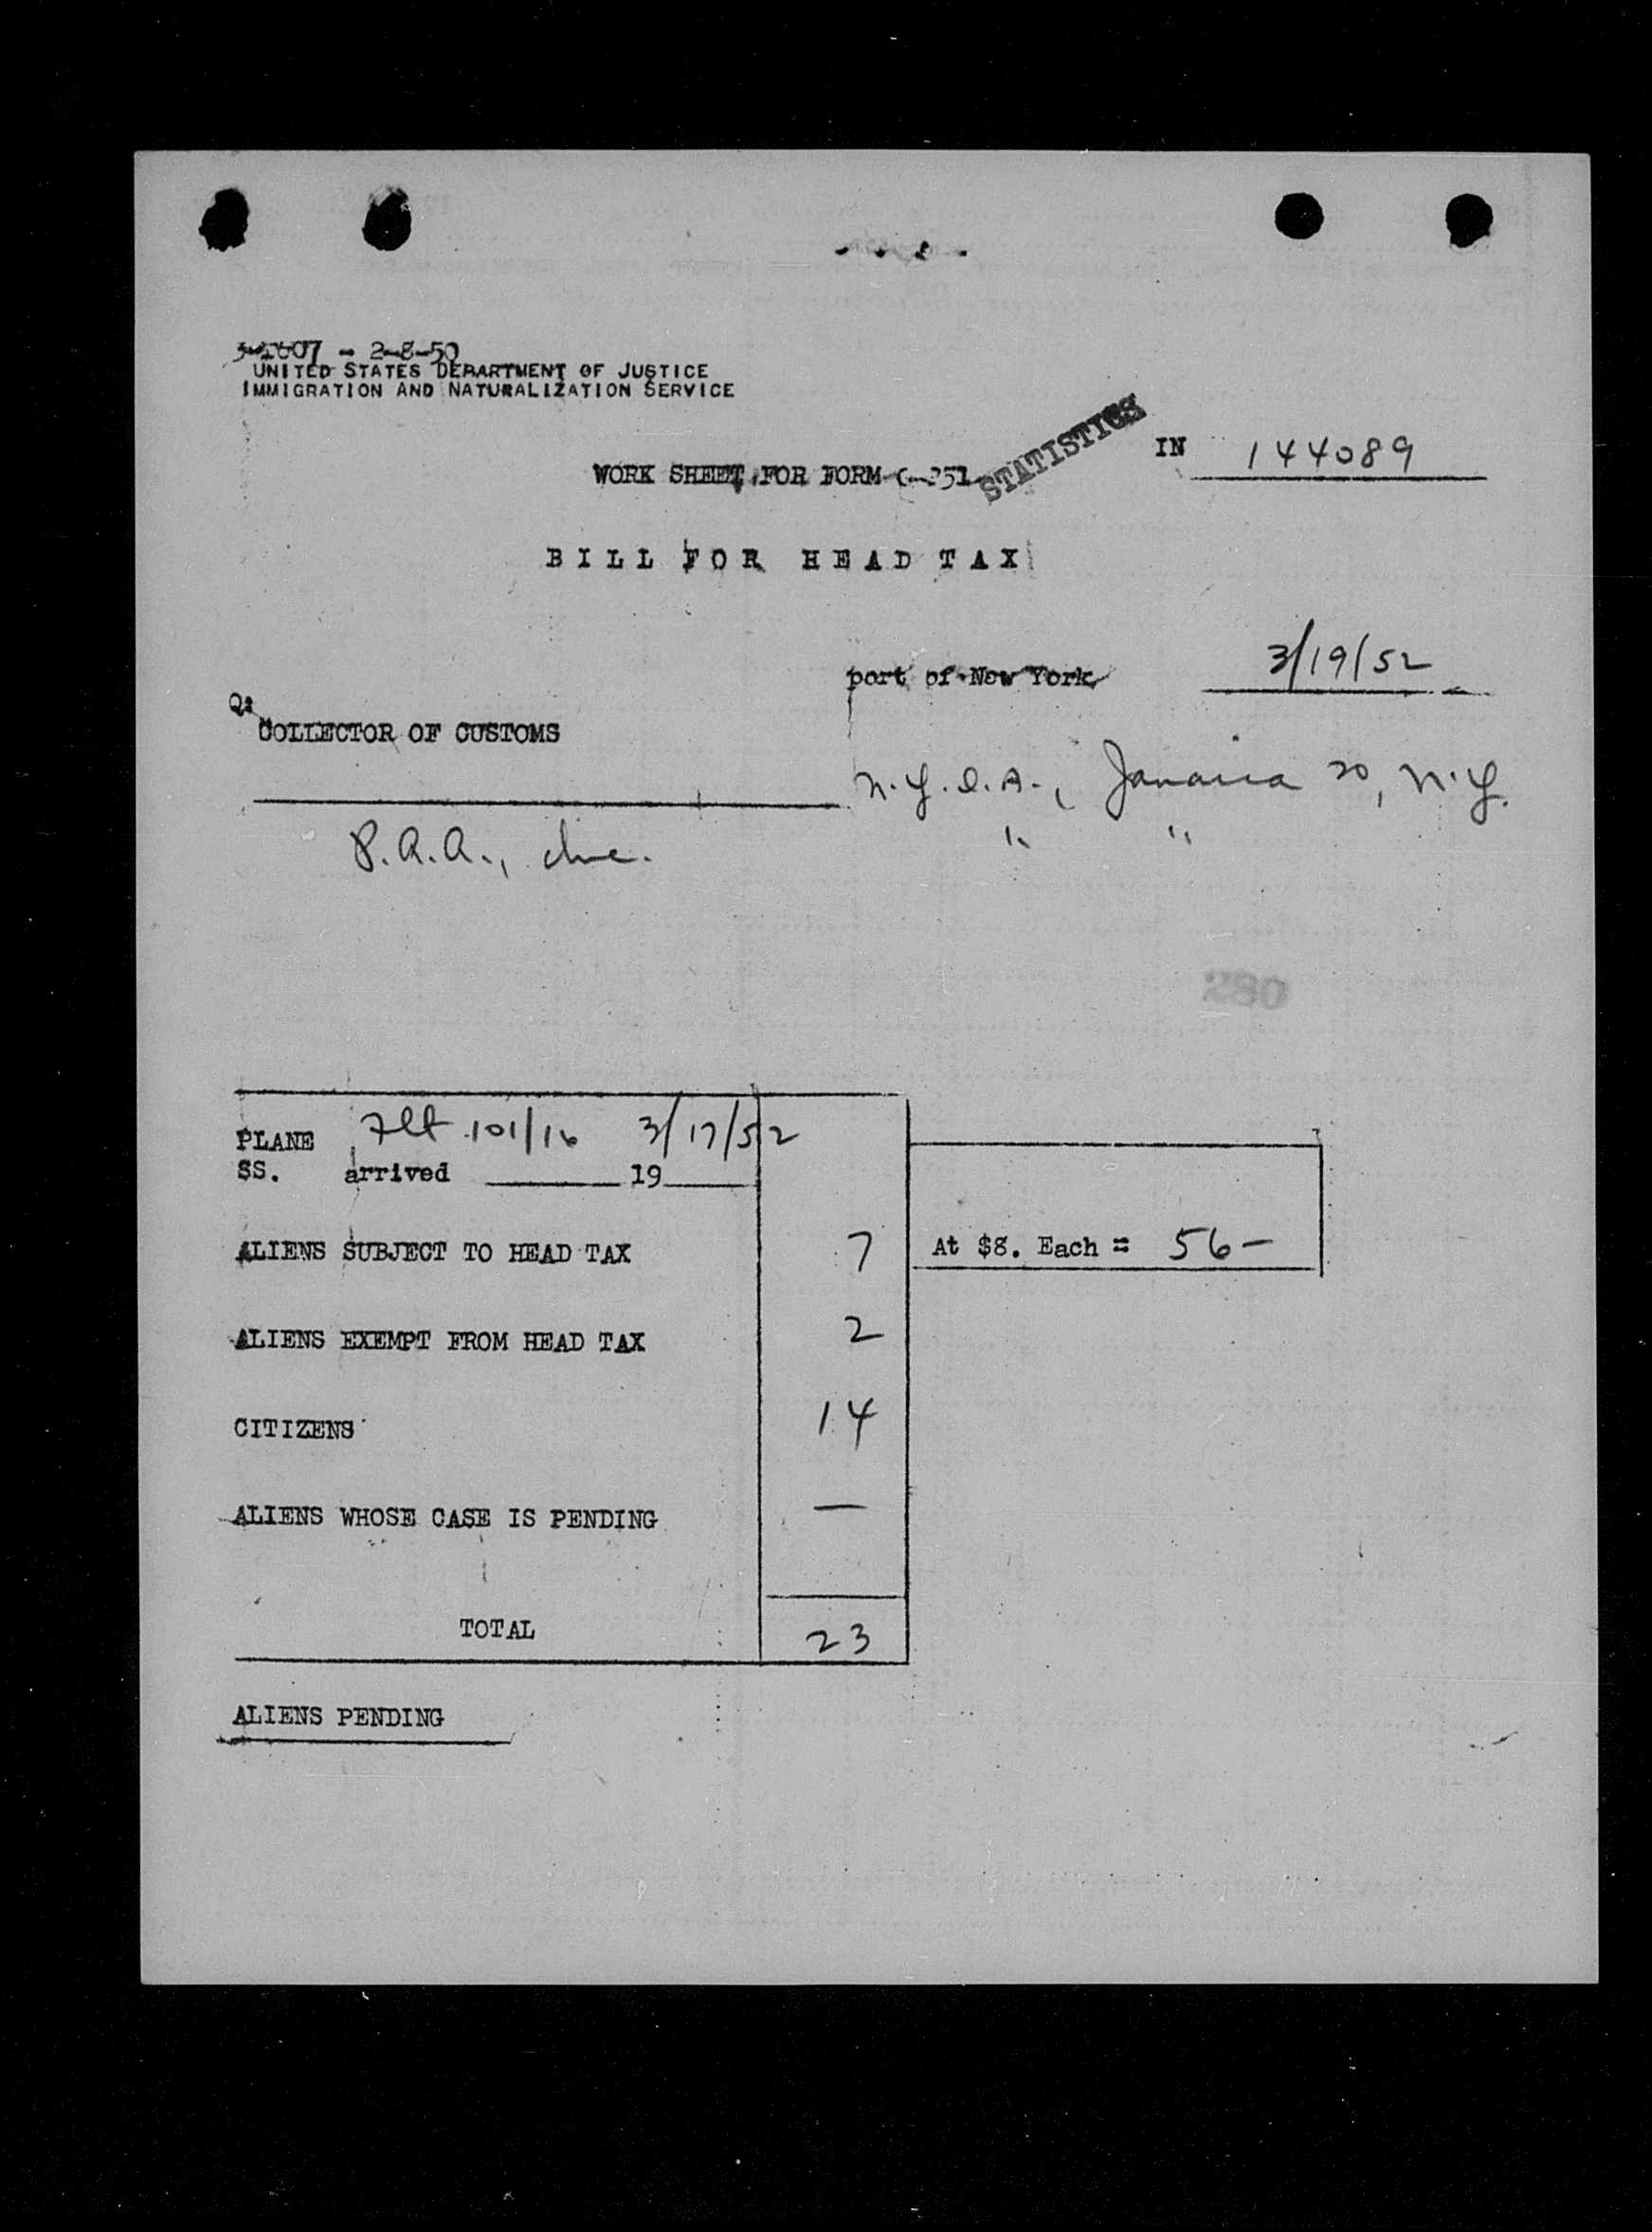 - 2-8-50
UNITED STATES DEPARTMENT OF JUSTICE
IMMIGRATION AND NATURALIZATION SERVICE
STATISTICS
IN 144089
WORK SHEET FOR FORM
BILL FOR HEAD TAX
port of New York 3/19/52
COLLECTOR OF CUSTOMS
N.Y.I.A., Jamaica 30, N.Y.
P.A.A., Inc. " "
280
PLANE Flt 101/16 3/17/52
SS. arrived 19
ALIENS SUBJECT TO HEAD TAX 7 At $8. Each = 56-
ALIENS EXEMPT FROM HEAD TAX 2
CITIZENS 14
ALIENS WHOSE CASE IS PENDING —
TOTAL 23
ALIENS PENDING